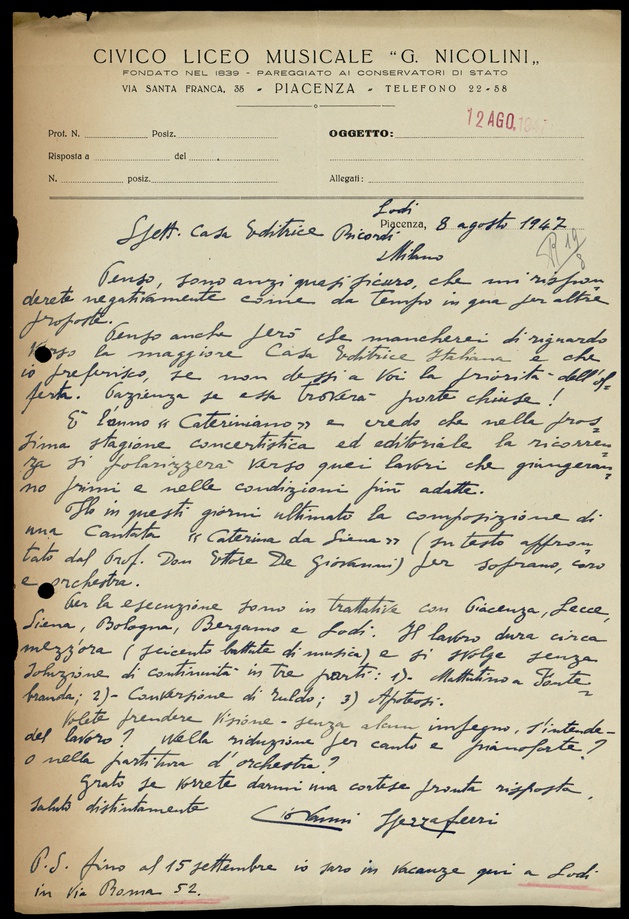 CIVICO LICEO MUSICALE "G. NICOLINI„
FONDATO NEL 1839 - PAREGGIATO AI CONSERVATORI DI STATO
VIA SANTA FRANCA, 35 - PIACENZA - TELEFONO 22-58
Prot. N. Posiz. OGGETTO: 12 AGO. 1947
Risposta a del
N. posiz. Allegati:
Lodi
Piacenza, 8 agosto 1947
Spett. Casa Editrice Ricordi
Milano
R 19/8
Penso, sono anzi quasi sicuro, che mi rispon-
derete negativamente come da tempo in qua per altre
proposte.
Penso anche però che mancherei di riguardo
verso la maggiore Casa Editrice Italiana e che
io preferisco, se non dessi a Voi la priorità dell'of-
ferta. Pazienza se essa troverà porte chiuse!
È l'anno "Cateriniano" e credo che nella pros-
sima stagione concertistica ed editoriale la ricorren-
za si polarizzerà verso quei lavori che giungeran-
no primi e nelle condizioni più adatte.
Ho in questi giorni ultimato la composizione di
una Cantata "Caterina da Siena" (su testo appron-
tato dal Prof. Don Ettore De Giovanni) per soprano, coro
e orchestra.
Per la esecuzione sono in trattative con Piacenza, Lecce,
Siena, Bologna, Bergamo e Lodi. Il lavoro dura circa
mezz'ora (seicento battute di musica) e si svolge senza
soluzione di continuità in tre parti: 1)- Mattutino a Fonte-
branda; 2)- Conversione di Tuldo; 3) Apoteosi.
Volete prendere visione - senza alcun impegno, s'intende -
del lavoro? Nella riduzione per canto e pianoforte?
o nella partitura d'orchestra?
Grato se vorrete darmi una cortese pronta risposta,
saluto distintamente
Giovanni Spezzaferri
P.S. fino al 15 settembre io sarò in vacanze qui a Lodi
in Via Roma 52.